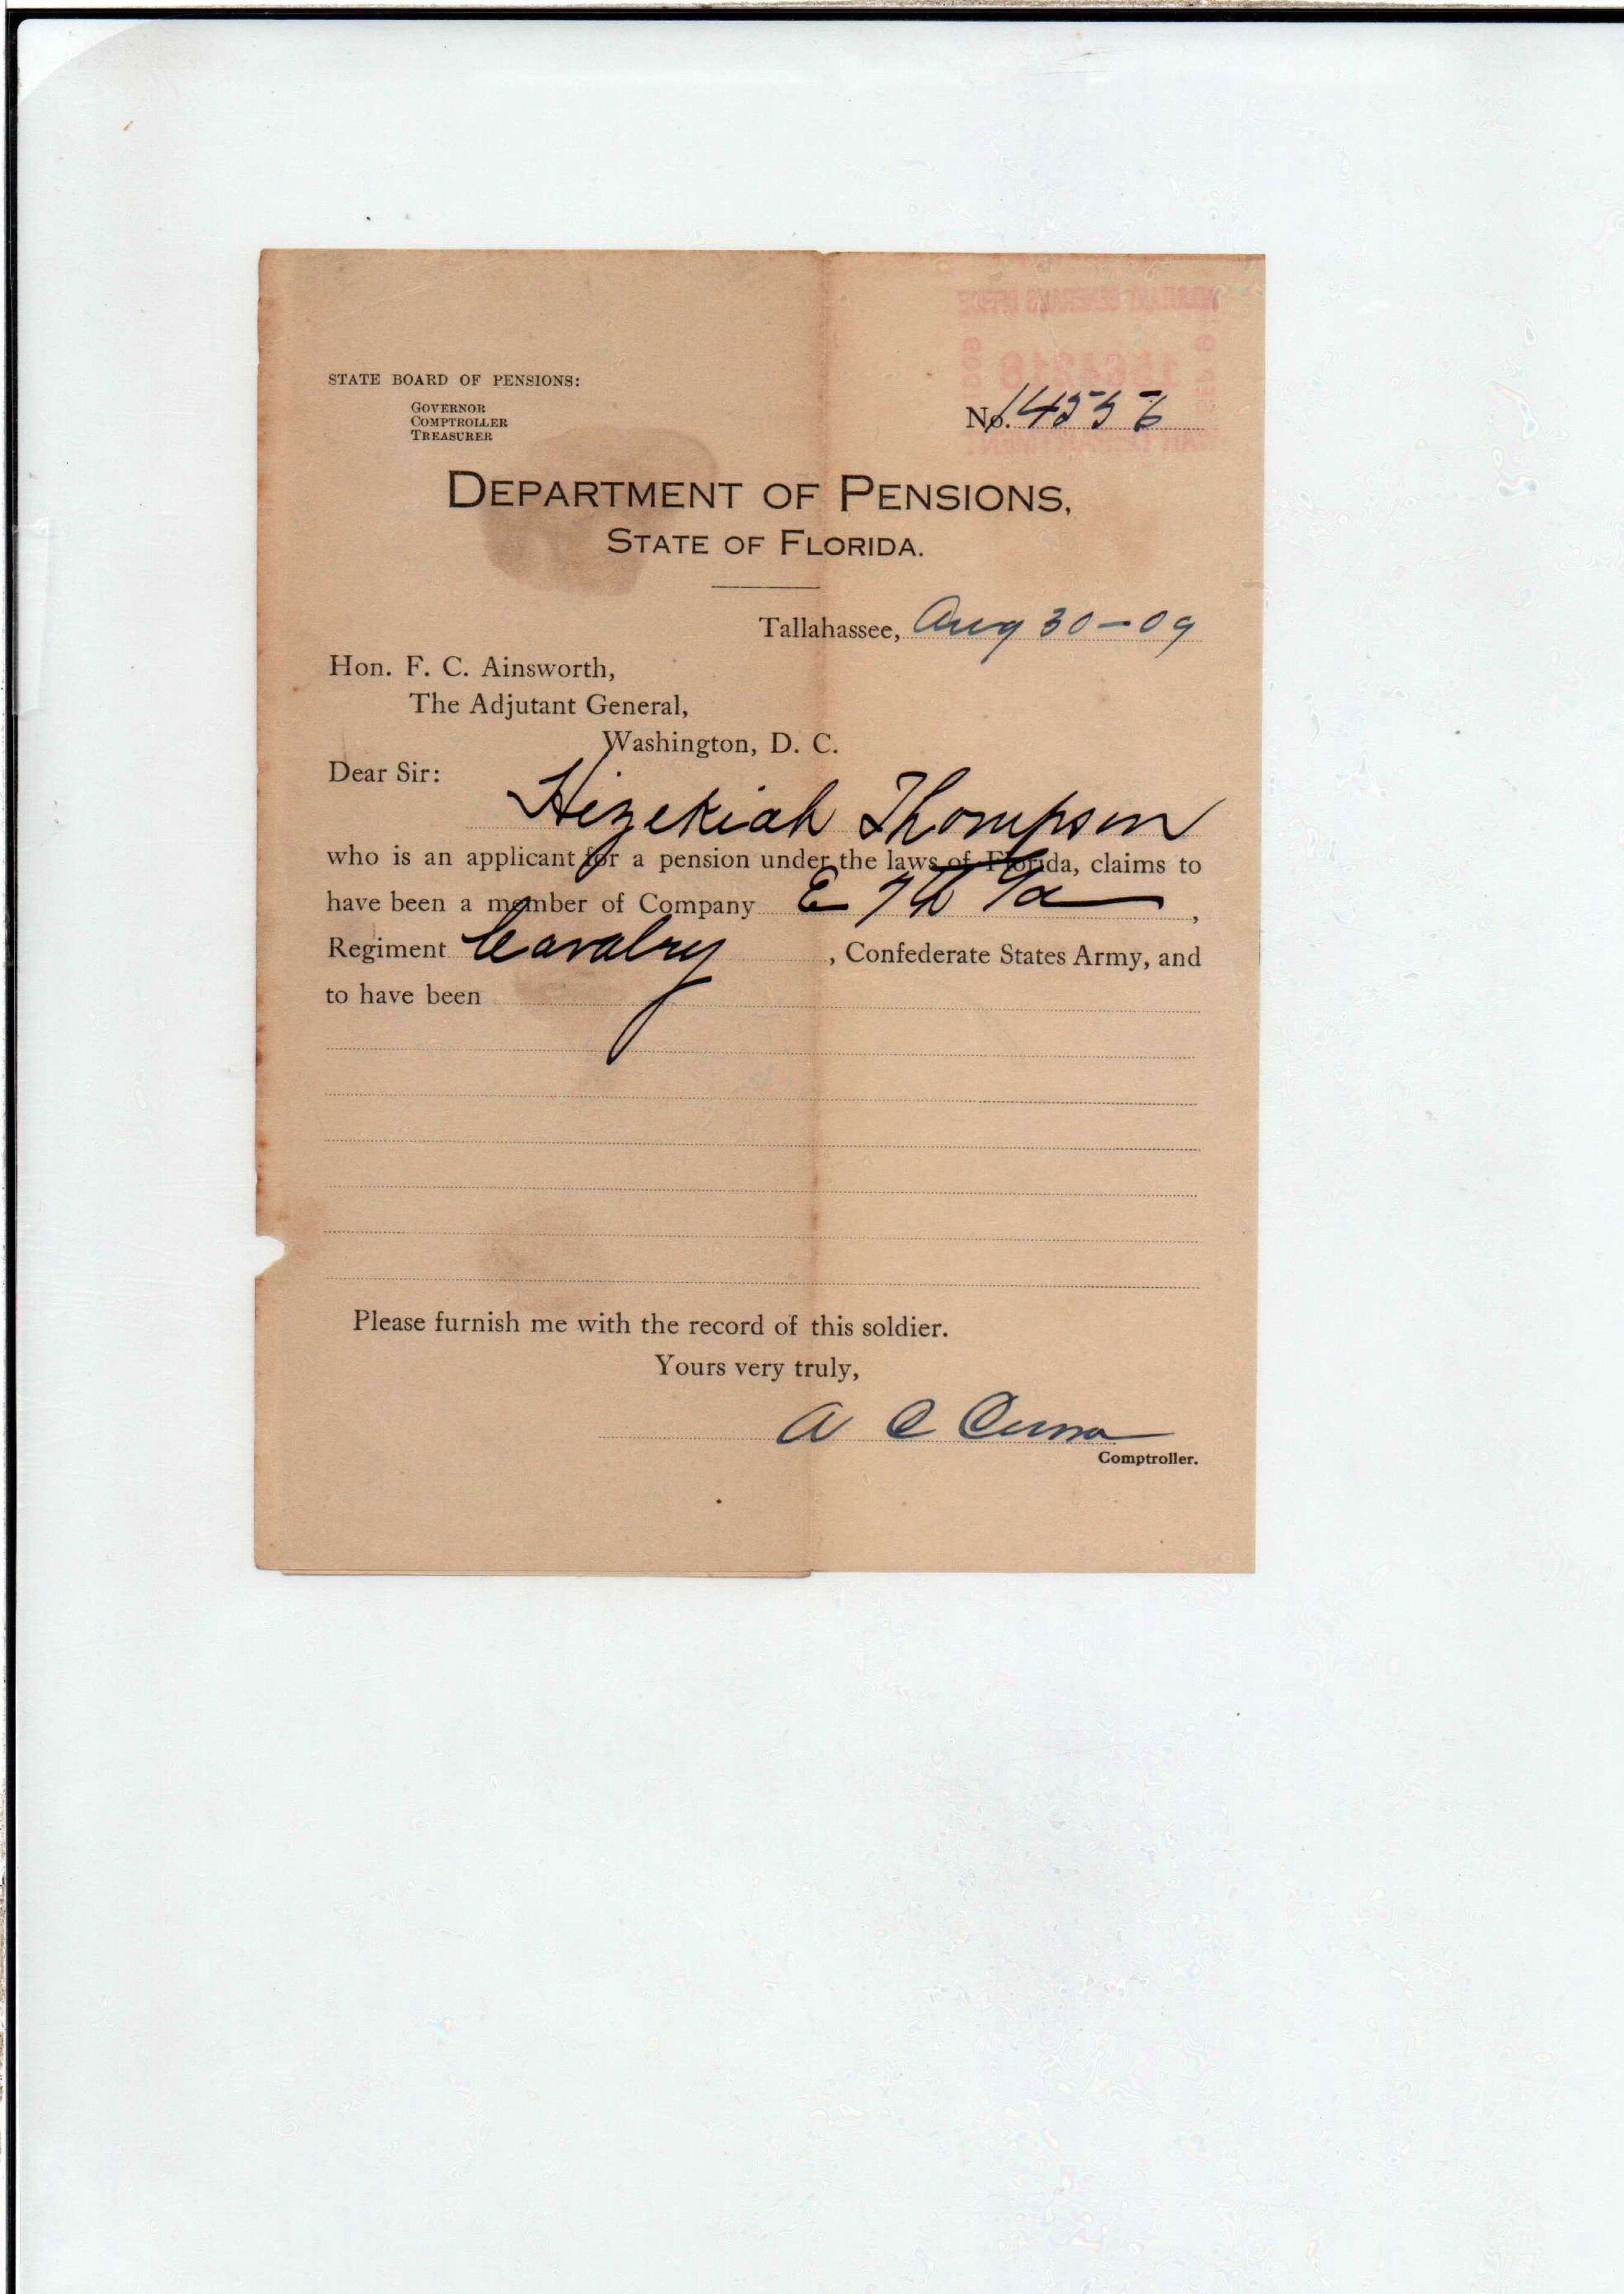 STATE BOARD OF PENSIONS:
GOVERNOR
COMPTROLLER
TREASURER
No. 14556
DEPARTMENT OF PENSIONS,
STATE OF FLORIDA.
Tallahassee, Aug 30-09
Hon. F. C. Ainsworth,
The Adjutant General,
Washington, D. C.
Dear Sir:
Hezekiah Thompson
who is an applicant for a pension under the laws of Florida, claims to
have been a member of Company E 7th Ga,
Regiment Cavalry, Confederate States Army, and
to have been
Please furnish me with the record of this soldier.
Yours very truly,
A C Croom
Comptroller.